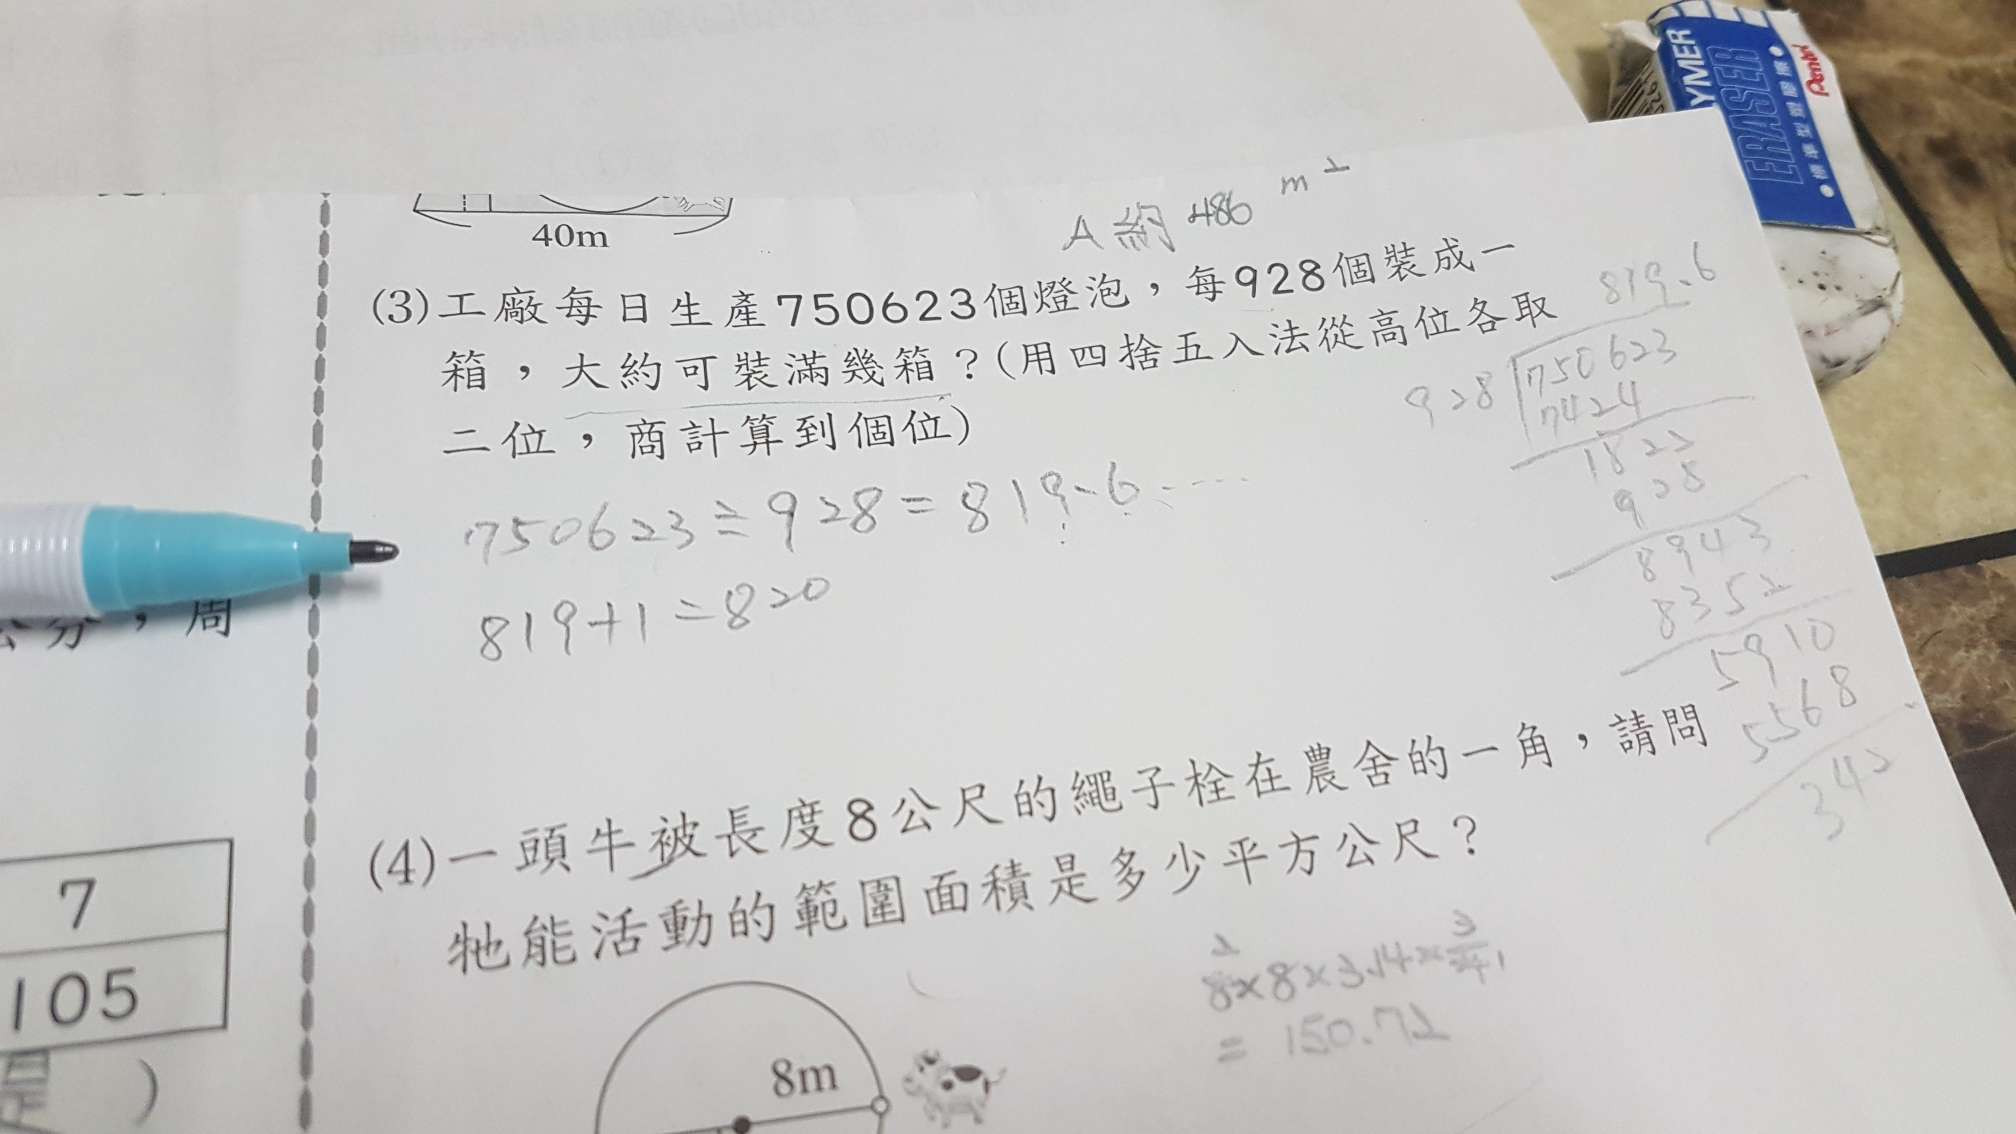 40m
A 約 486 m²
(3)工廠每日生產750623個燈泡，每928個裝成一
箱，大約可裝滿幾箱？(用四捨五入法從高位各取
二位，商計算到個位)
750623÷928=819.6……
819+1=820
819.6
928 750623
7424
1822
928
8943
8352
5910
5568
342
(4)一頭牛被長度8公尺的繩子栓在農舍的一角，請問
牠能活動的範圍面積是多少平方公尺？
8×8×3.14×3/4
=150.72
8m
周
7
105
)
YMER
ERASER
Pentel